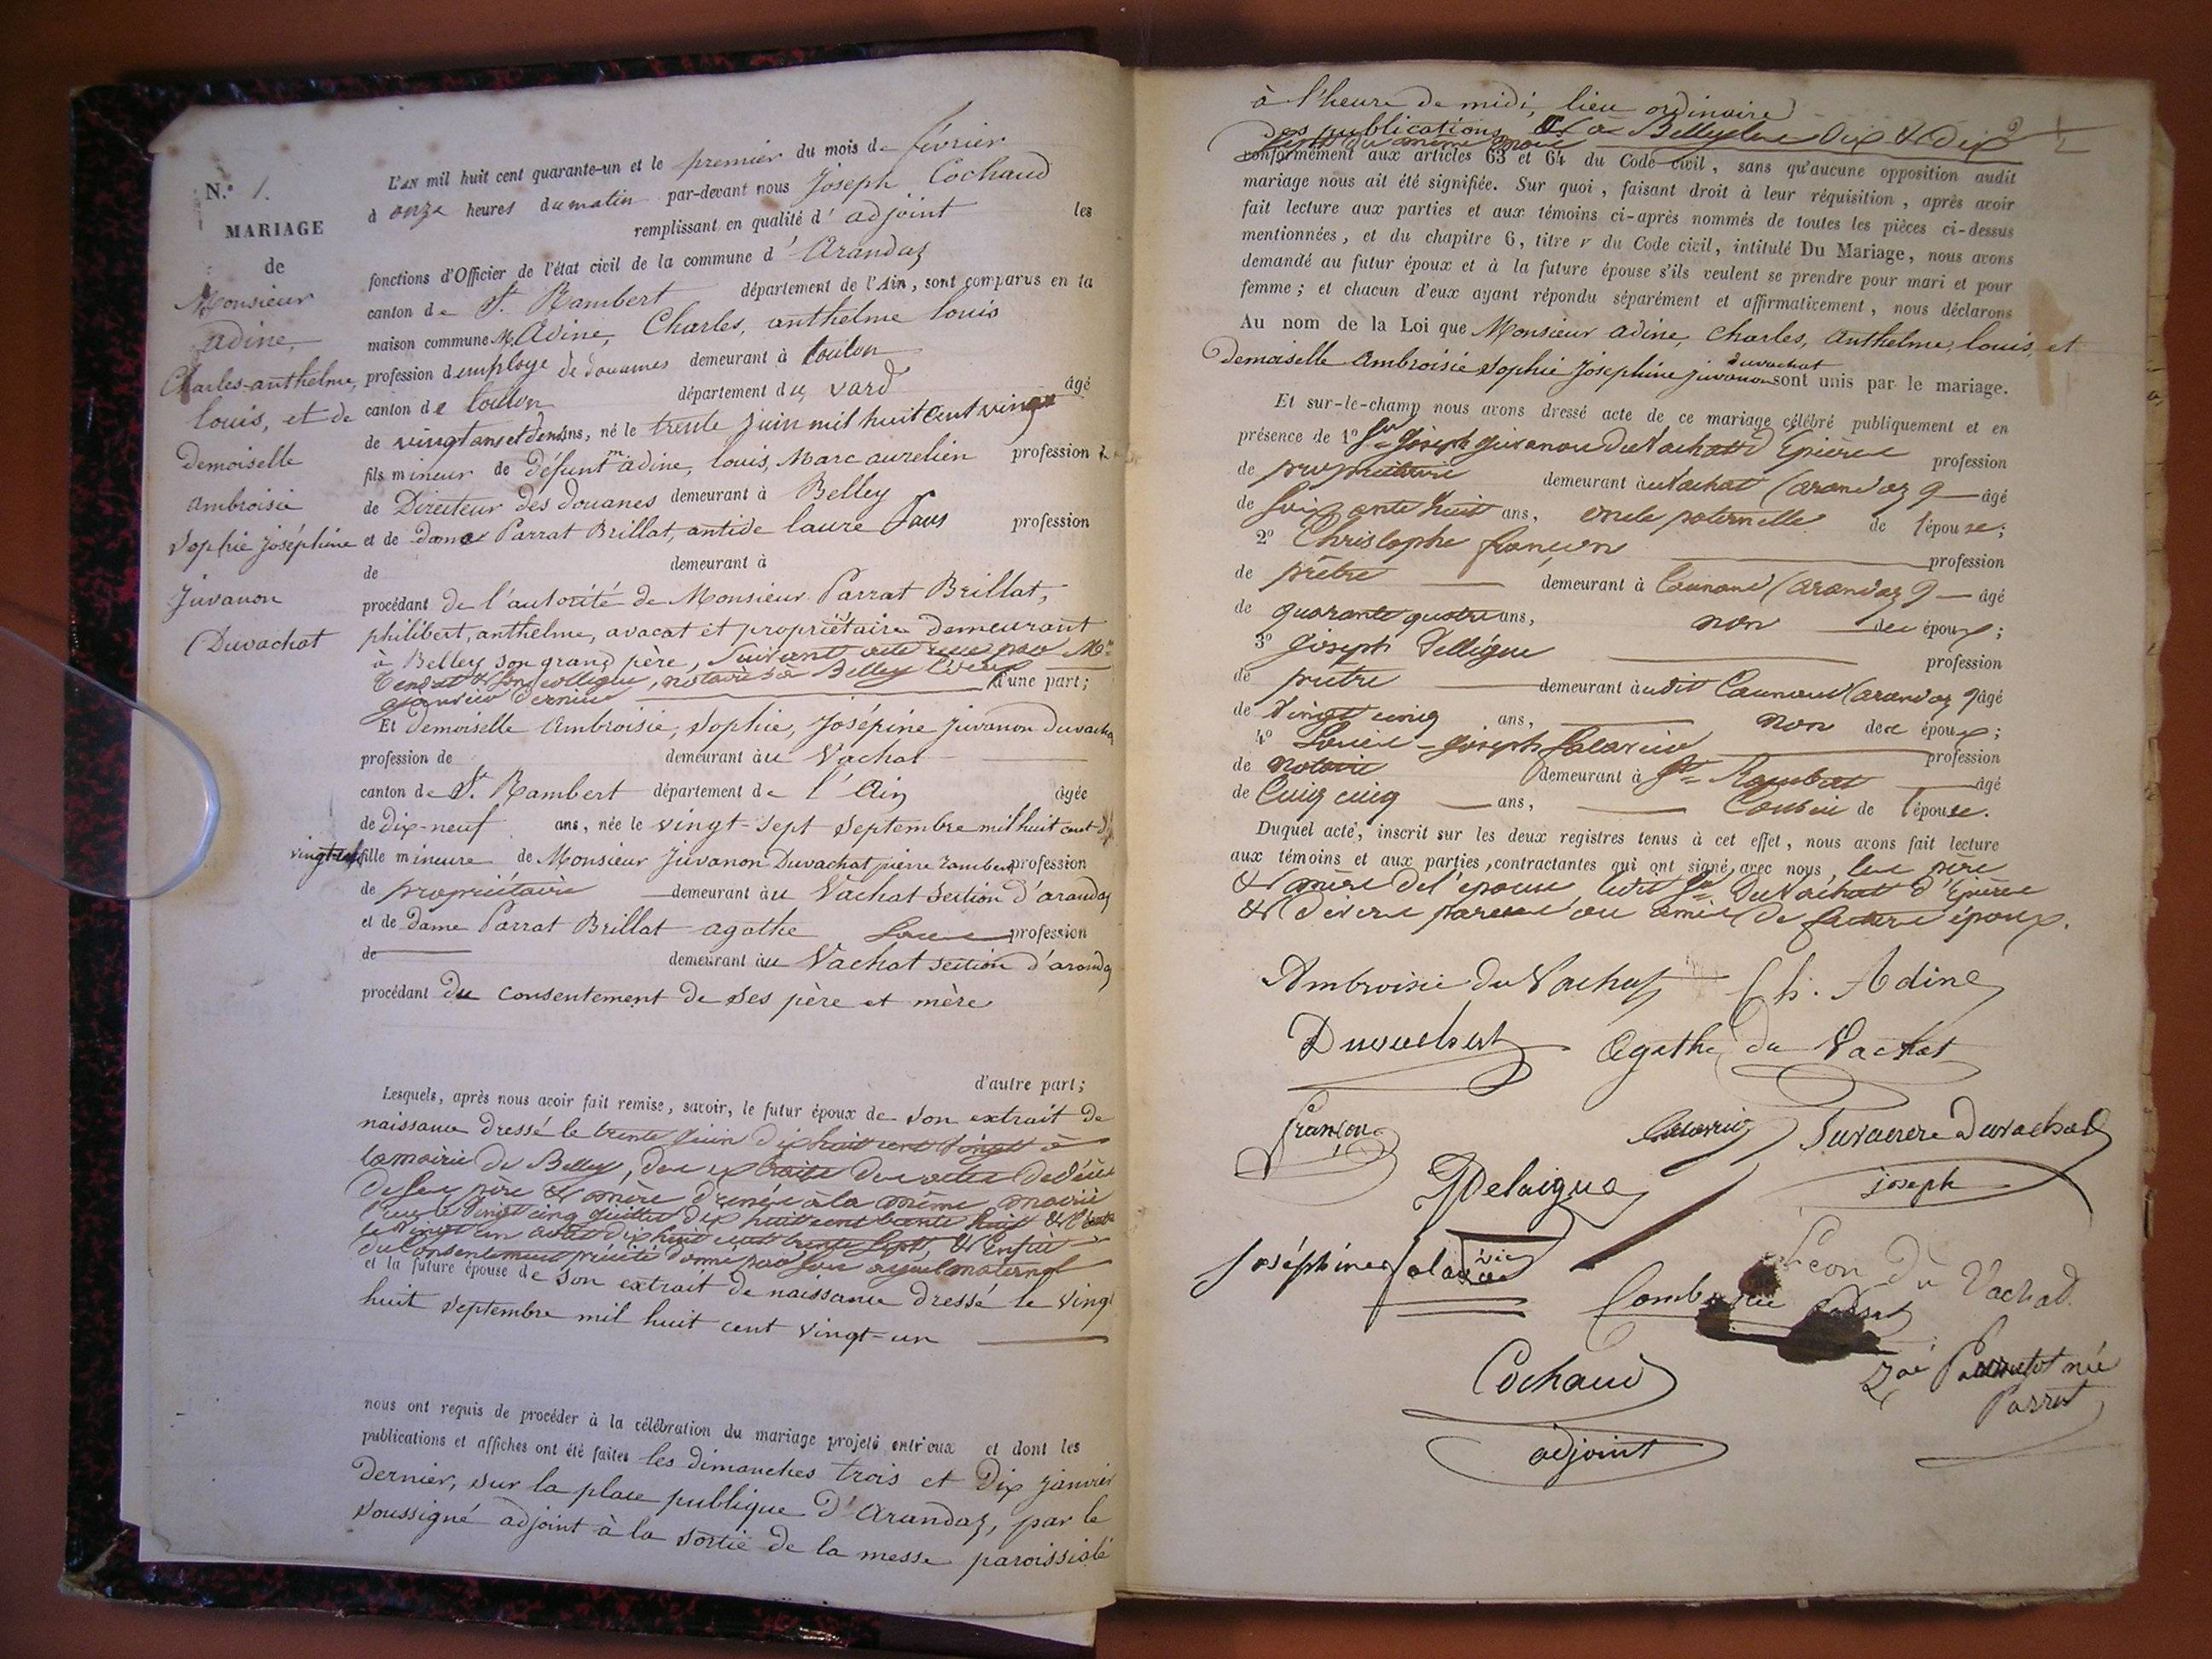 N.° 1.
MARIAGE
de
Monsieur
adine,
Charles-anthelme,
louis, et de
demoiselle
ambroisie
Sophie joséphine
Juvanon
Duvachat
L'AN mil huit cent quarante-un et le premier du mois de février
à onze heures du matin par-devant nous Joseph Cochaud
remplissant en qualité d'adjoint les
fonctions d'Officier de l'état civil de la commune d'Arandas
canton de St. Rambert département de l'Ain, sont comparus en la
maison commune M. Adine, Charles, anthelme louis
profession d'employé de douanes demeurant à toulon
canton de toulon département du vard âgé
de vingt ans et demi ans, né le trente juin mil huit cent vingt
fils mineur de défunt m adine, louis, Marc aurelien profession
de Directeur des douanes demeurant à Belley
et de dame Parrat Brillat, antide laure Sans profession
de demeurant à
procédant de l'autorité de Monsieur Parrat Brillat,
philibert, anthelme, avocat et propriétaire demeurant
à Belley son grand père, suivant acte reçu par Me
& son collègue, notaires à Belley le
janvier dernier d'une part;
Et demoiselle Ambroisie, Sophie, Josépine Juvanon duvachat
profession de demeurant au Vachat
canton de St. Rambert département de l'Ain âgée
de dix-neuf ans, née le vingt-sept Septembre mil huit cent
vingt-un fille mineure de Monsieur Juvanon Duvachat pierre rambert profession
de propriétaire demeurant au Vachat section d'arandas
et de dame Parrat Brillat agathe Sans profession
de demeurant au Vachat section d'arandas
procédant du consentement de ses père et mère
d'autre part;
Lesquels, après nous avoir fait remise, savoir, le futur époux de son extrait de
naissance dressé le trente juin dix huit cent vingt à
la mairie de Belley, des extraits des actes de décès
de ses père & mère dressés à la même mairie
l'un le vingt cinq juillet dix huit cent trente huit & l'autre
le vingt un août dix huit cent trente sept, & enfin
du consentement précité donné par son ayeul maternel
et la future épouse de son extrait de naissance dressé le vingt
huit septembre mil huit cent vingt-un
nous ont requis de procéder à la célébration du mariage projeté entr'eux et dont les
publications et affiches ont été faites les dimanches trois et dix janvier
dernier, sur la place publique d'Arandas, par le
soussigné adjoint à la sortie de la messe paroissiale
à l'heure de midi, lieu ordinaire
des publications & à Belley les dix & dix
sept du même mois
conformément aux articles 63 et 64 du Code civil, sans qu'aucune opposition audit
mariage nous ait été signifiée. Sur quoi, faisant droit à leur réquisition, après avoir
fait lecture aux parties et aux témoins ci-après nommés de toutes les pièces ci-dessus
mentionnées, et du chapitre 6, titre v du Code civil, intitulé Du Mariage, nous avons
demandé au futur époux et à la future épouse s'ils veulent se prendre pour mari et pour
femme; et chacun d'eux ayant répondu séparément et affirmativement, nous déclarons
Au nom de la Loi que Monsieur adine, Charles, Anthelme, louis, et
demoiselle Ambroisie Sophie Josephine juvanon duvachat sont unis par le mariage.
Et sur-le-champ nous avons dressé acte de ce mariage célébré publiquement et en
présence de 1° Sr Joseph juvanon duVachat d'Epierre profession
de propriétaire demeurant au Vachat (arandas) âgé
de soixante huit ans, oncle paternelle de l'épouse;
2° Christophe françon profession
de prêtre demeurant à (arandas) âgé
de quarante quatre ans, non des époux;
3° Joseph profession
de prêtre demeurant audit (arandas) âgé
de vingt cinq ans, non des époux;
4° Joseph profession
de notaire demeurant à St Rambert âgé
de ans, Cousin de l'épouse.
Duquel acte, inscrit sur les deux registres tenus à cet effet, nous avons fait lecture
aux témoins et aux parties, contractantes qui ont signé, avec nous, les père
& mère de l'épouse, ledit Sr DuVachat d'Epierre
& divers parens ou amis de époux.
Ambroisie du Vachat Ch. Adine
Duvachat Agathe du Vachat
françon Juvanon Duvachat
joseph
Delaigue
Joséphine
Léon du Vachat
Cochaud
adjoint
Zoé née
Parrat